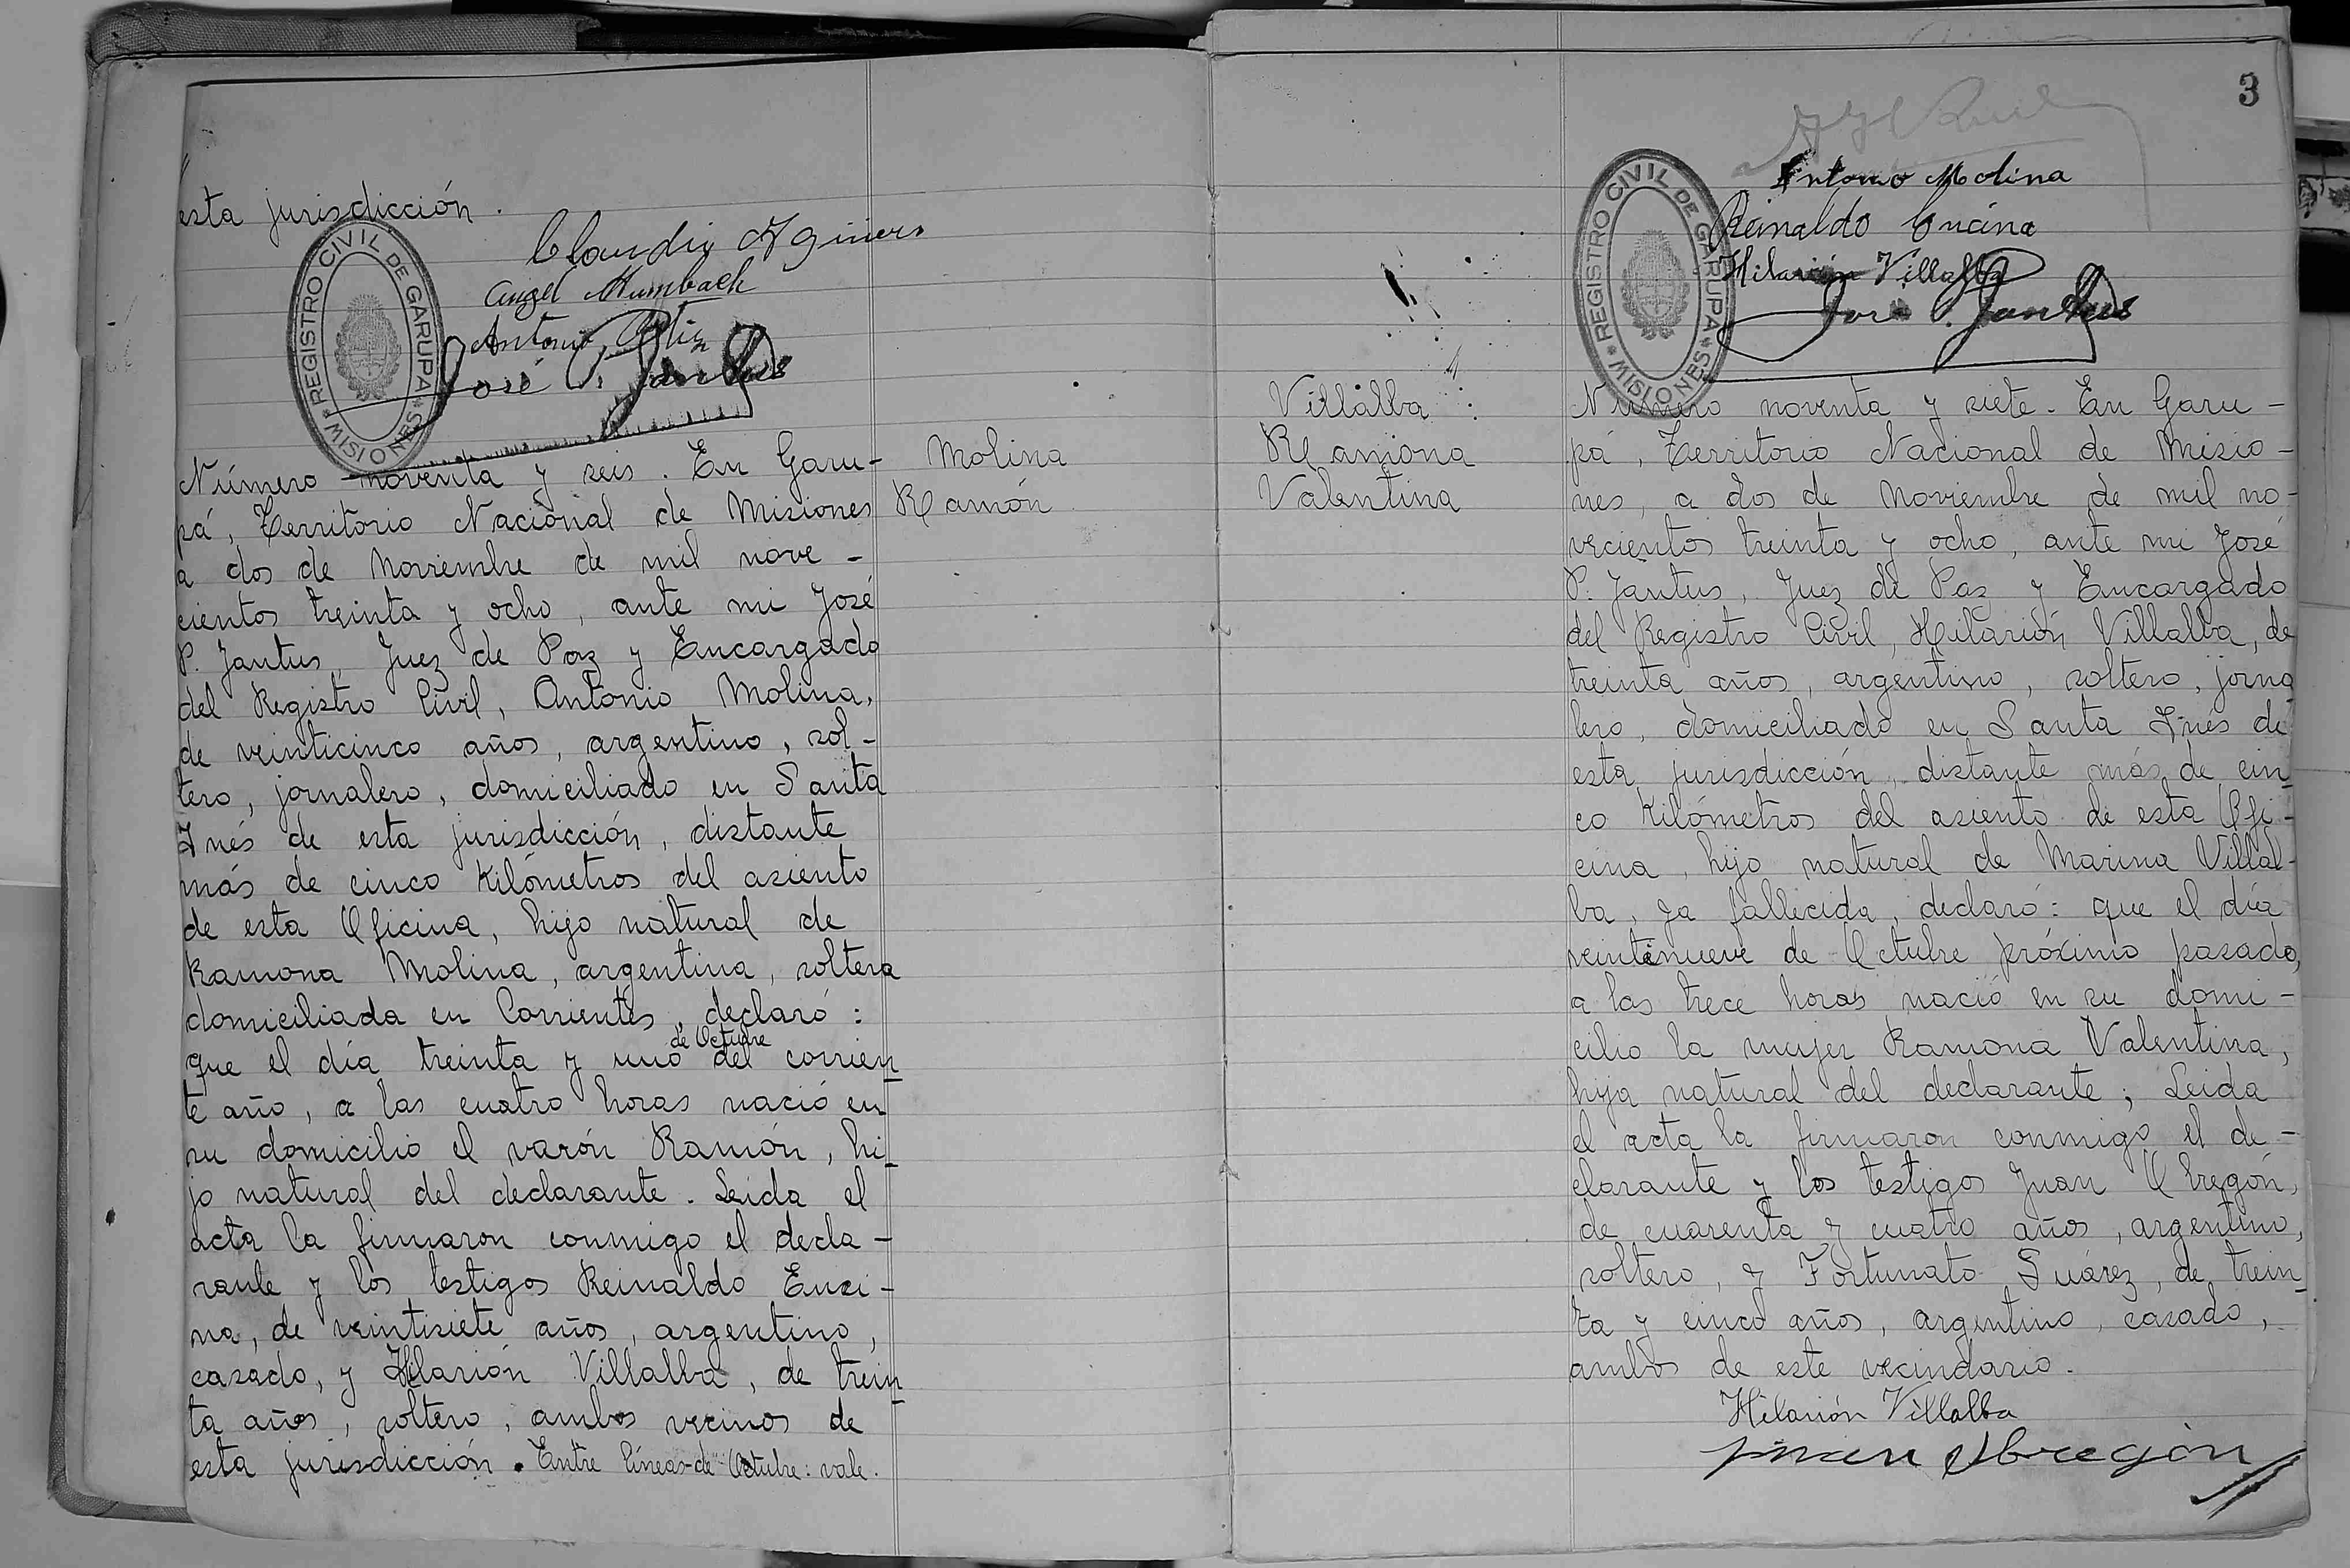 esta jurisdicción.
REGISTRO CIVIL DE GARUPA
* MISIONES *
Angel
Antonio
José P.
Número noventa y seis. En Garu-
pá, Territorio Nacional de Misiones
a dos de Noviembre de mil nove-
cientos treinta y ocho, ante mi José
P. Jantus, Juez de Paz y Encargado
del Registro Civil, Antonio Molina,
de veinticinco años, argentino, sol-
tero, jornalero, domiciliado en Santa
Inés de esta jurisdicción, distante
más de cinco Kilómetros del asiento
de esta Oficina, hijo natural de
Ramona Molina, argentina, soltera
domiciliada en Corrientes, declaró:
de Octubre
que el día treinta y uno del corrien
te año, a las cuatro horas nació en
su domicilio el varón Ramón, hi-
jo natural del declarante. Leida el
acta la firmaron conmigo el decla-
rante y los testigos Reinaldo Enci-
na, de veintisiete años, argentino,
casado, y Hilarión Villalba, de trein
ta años, soltero, ambos vecinos de
esta jurisdicción. Entre líneas-de Octubre: vale.
Molina
Ramón
3
Antonio Molina
Reinaldo Encina
Hilarión Villalba
José P. Jantus
REGISTRO CIVIL DE GARUPA
* MISIONES *
Villalba
Ramona
Valentina
Número noventa y siete. En Garu-
pá, Territorio Nacional de Misio-
nes, a dos de Noviembre de mil no-
vecientos treinta y ocho, ante mi José
P. Jantus, Juez de Paz y Encargado
del Registro Civil, Hilarión Villalba, de
treinta años, argentino, soltero, jorna
lero, domiciliado en Santa Inés de
esta jurisdicción, distante más de cin
co Kilómetros del asiento de esta Ofi-
cina, hijo natural de Marina Villal-
ba, ya fallecida, declaró: que el día
veintinueve de Octubre próximo pasado,
a las trece horas nació en su domi-
cilio la mujer Ramona Valentina,
hija natural del declarante; Leida
el acta la firmaron conmigo el de-
clarante y los testigos Juan Obregón,
de cuarenta y cuatro años, argentino,
soltero, y Fortunato Suárez, de trein
ta y cinco años, argentino, casado,
ambos de este vecindario.
Hilarión Villalba
Juan Obregón